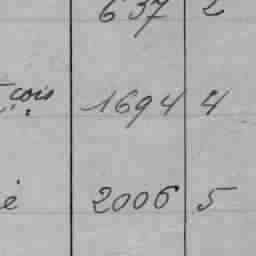 637 2
çois 1694 4
é 2006 5